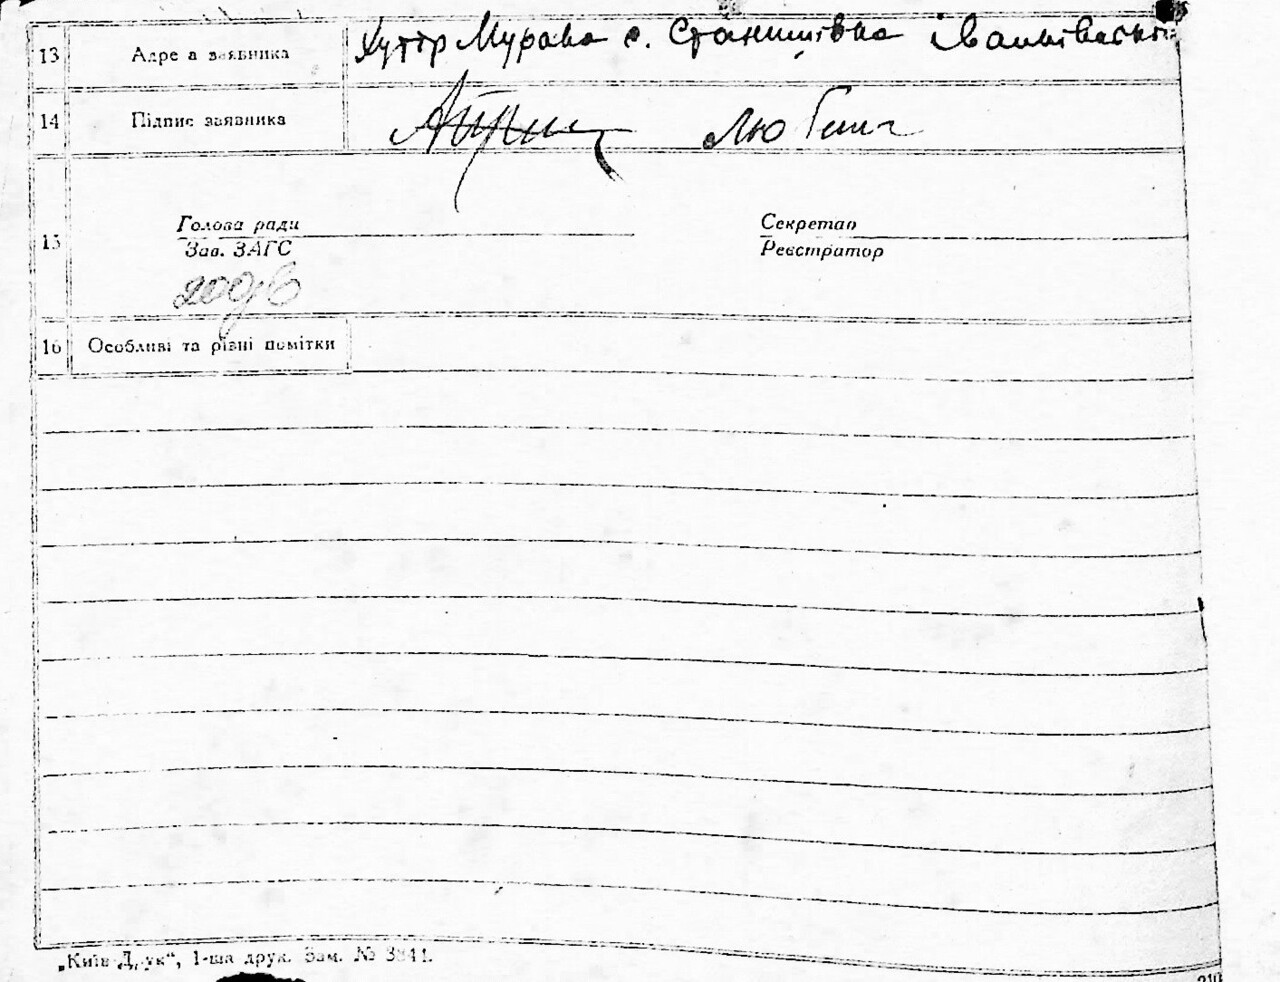 13 Адре а заявника Хутір Мурава с. Станишівка Іванківськ
14 Підпис заявника
15
Голова ради Секретар
Зав. ЗАГС Реєстратор
16 Особливі та різні помітки
„Київ-Друк“, 1-ша друк. Зам. № 3841.